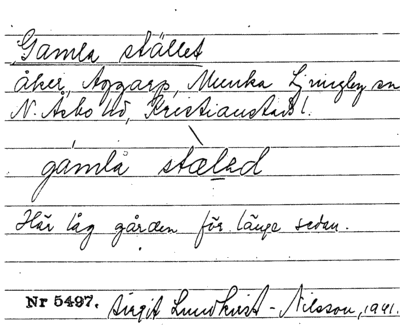 Gamla stället
åker, Aggarp, Munka Ljungby sn
N. Åsbo hd, Kristianstads l.
gámlà stæled
Här låg gården för länge sedan.
Nr 5497. Birgit Lundkvist-Nilsson, 1941.